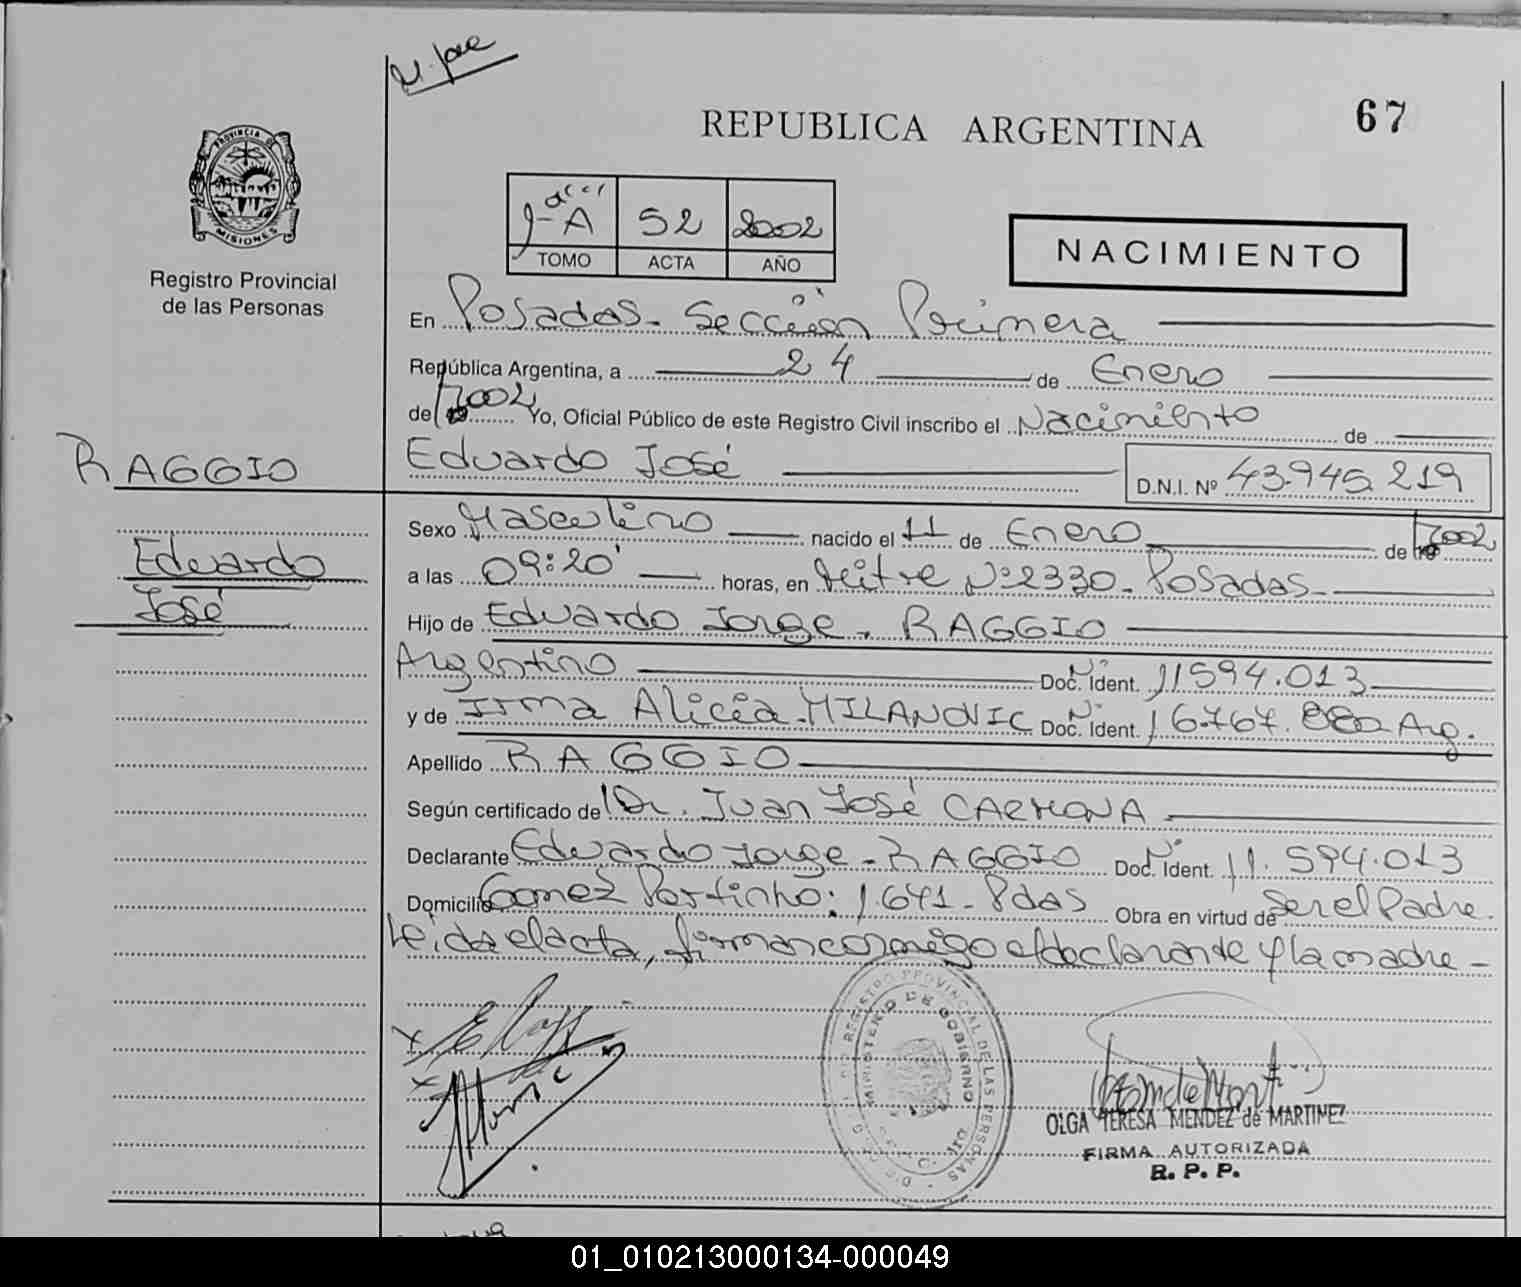 67
REPUBLICA ARGENTINA
PROVINCIA DE
MISIONES
Registro Provincial
de las Personas
A 52 2002
TOMO ACTA AÑO
NACIMIENTO
En Posadas - Sección Primera
República Argentina, a 24 de Enero
de 2002 Yo, Oficial Público de este Registro Civil inscribo el Nacimiento de
RAGGIO
Eduardo José
Eduardo José D.N.I. Nº 43.945.219
Sexo Masculino nacido el 11 de Enero de 2002
a las 09:20' horas, en Mitre Nº 2330 - Posadas -
Hijo de Eduardo Jorge - RAGGIO
Argentino Doc. Nº Ident. 11594.013
y de Irma Alicia - MILANOVIC Doc. Nº Ident. 16767. Arg.
Apellido RAGGIO
Según certificado de Dr. Juan José CARMONA
Declarante Eduardo Jorge - RAGGIO Doc. Nº Ident. 11.594.013
Domicilio Gomez Portinho: 1641 - Pdas Obra en virtud de Ser el Padre.
Leida el acta, firman conmigo el declarante y la madre -
REGISTRO PROVINCIAL DE LAS PERSONAS
MINISTERIO DE GOBIERNO
OLGA TERESA MENDEZ de MARTINEZ
FIRMA AUTORIZADA
R. P. P.
01_010213000134-000049